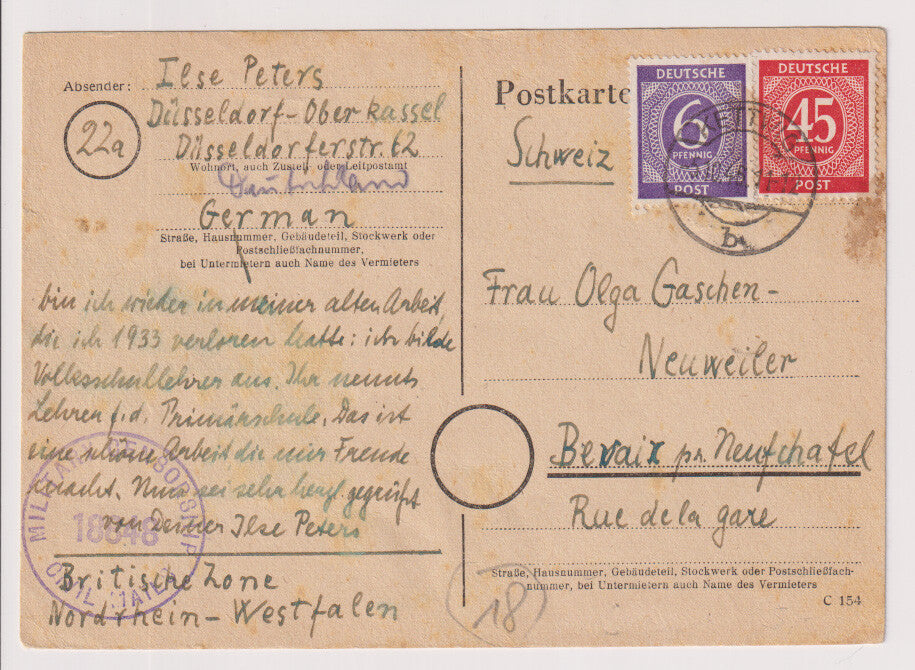 Absender: Ilse Peters
Düsseldorf-Oberkassel
22a
Düsseldorferstr. 62
Wohnort, auch Zustell- oder Leitpostamt
Deutschland
German
Straße, Hausnummer, Gebäudeteil, Stockwerk oder
Postschließfachnummer,
bei Untermietern auch Name des Vermieters
bin ich wieder in meiner alten Arbeit,
die ich 1933 verloren hatte: ich bilde
Volksschullehrer aus. Ihr nennts
Lehrer f.d. Primarschule. Das ist
eine schöne Arbeit die mir Freude
macht. Nun sei sehr herzl gegrüßt
von Deiner Ilse Peters
MILITARY CENSORSHIP
18848
CIVIL MAILS
Britische Zone
Nordrhein-Westfalen
Postkarte
Schweiz
DEUTSCHE
6
PFENNIG
POST
DEUTSCHE
45
PFENNIG
POST
b
Frau Olga Gaschen-
Neuweiler
Bevaix pr. Neufchatel
Rue de la gare
Straße, Hausnummer, Gebäudeteil, Stockwerk oder Postschließfach-
nummer, bei Untermietern auch Name des Vermieters
C 154
18